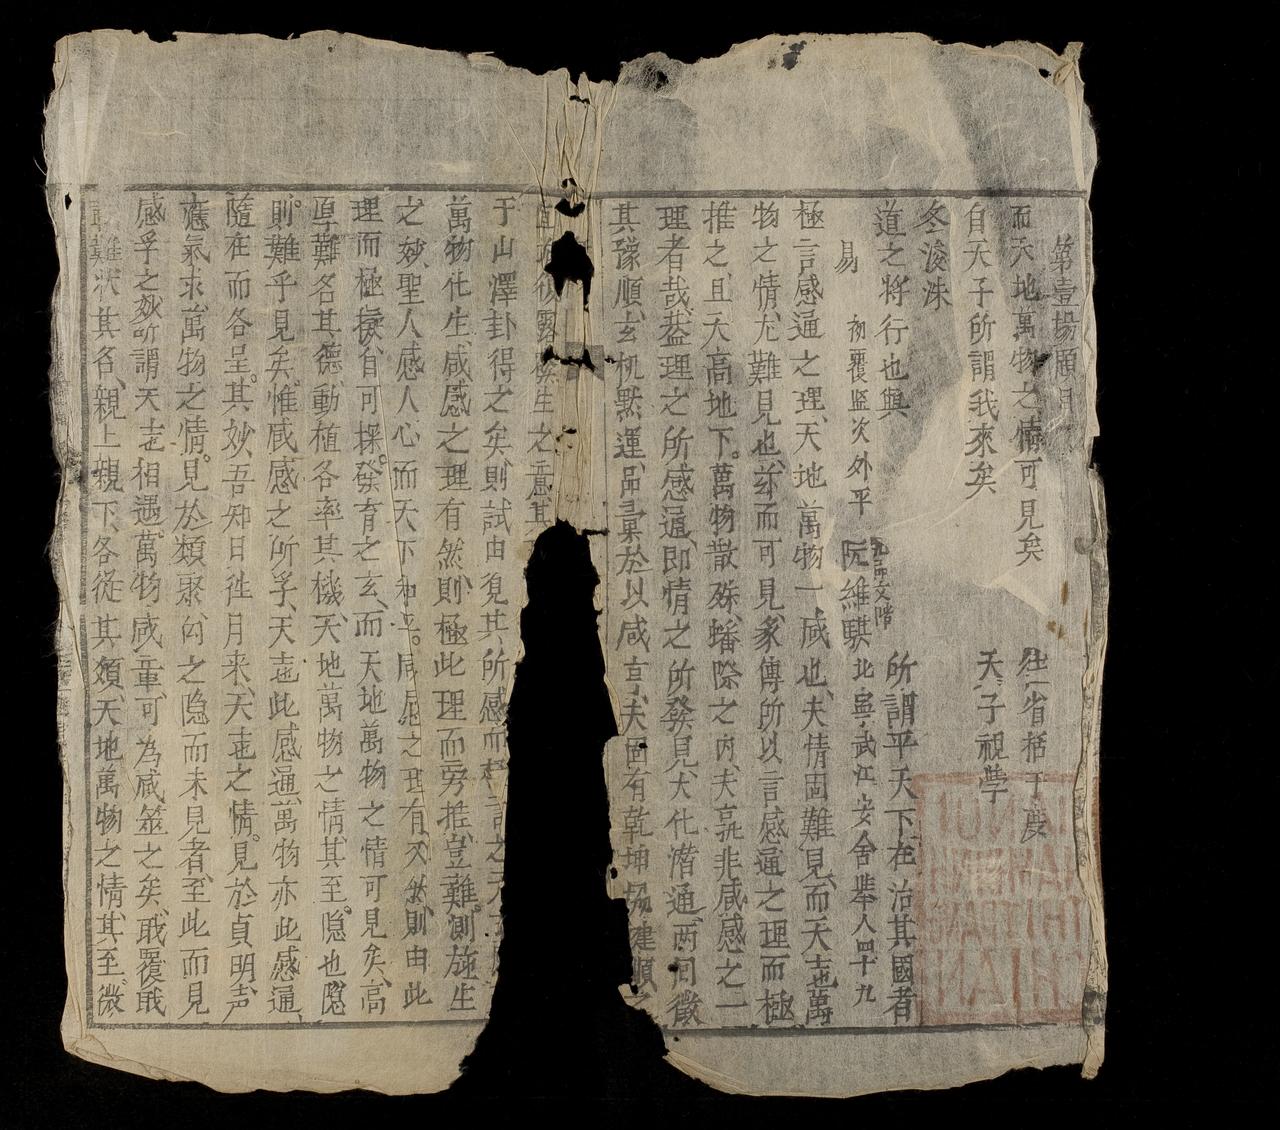 第壹場題目
而天地萬物之情可見矣
往省括于度
自天子所謂我來矣
天子視學
冬浚洙
道之將行也與
所謂平天下在治其國者
易
初覆監次外平
阮維騏
北寧武江安舍舉人四十九
極言感通之理天地萬物一感也夫情固難見而天地萬
物之情尤難見也玆而可見彖傳所以言感通之理而極
推之且天高地下萬物散殊蟠際之內夫孰非咸感之
理者哉蓋理之所感通即情之所發見大化潛通兩間徵
其豫順玄机默運品彙於以咸亨夫固有乾坤協建順之
生之意其
于山澤卦得之矣則試由覔其所感而
萬物化生咸感之理有然則極此理而旁推豈難測旋生
之妙聖人感人心而天下和平咸感之理有又然則由此
理而極撰自可採發育之玄而天地萬物之情可見矣高
卑難名其德動植各率其機天地萬物之情其至隐也隐
則難乎見矣惟咸感之所孚天地此感通萬物亦此感通
隨在而各呈其妙吾知日徃月来天地之情見於貞明声
應氣求萬物之情見於類聚向之隐而未見者至此而見
感孚之玅所謂天地相遇萬物咸章可為咸筮之矣戢覆戢
難狀其名親上親下各從其類天地萬物之情其至微